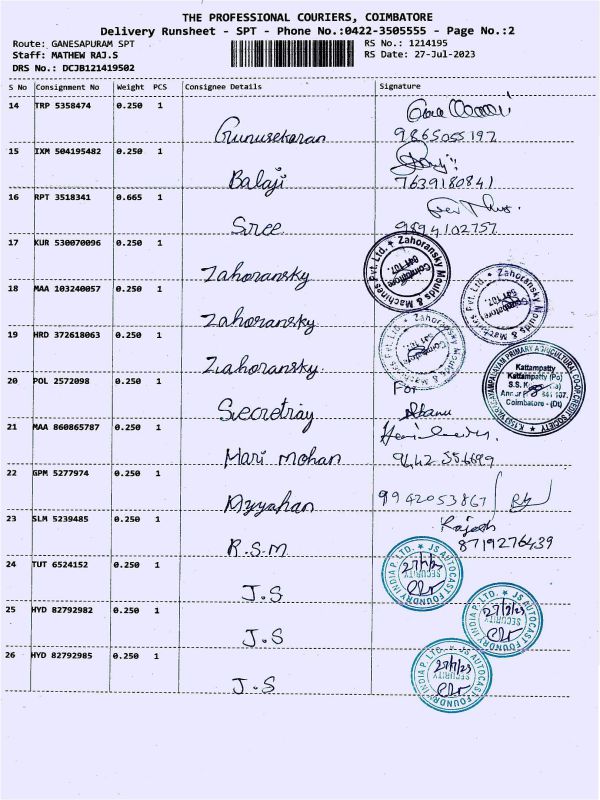 THE PROFESSIONAL COURIERS, COIMBATORE
Delivery Runsheet - SPT - Phone No.:0422-3505555 - Page No.:2
Route: GANESAPURAM SPT
RS No.: 1214195
Staff: MATHEW RAJ.S
RS Date: 27-Jul-2023
DRS No.: DCJB121419502
S No Consignment No Weight PCS Consignee Details Signature
14 TRP 5358474 0.250 1
Gunusekaran 9865055197
15 IXM 504195482 0.250 1
Balaji 7639180841
16 RPT 3518341 0.665 1
Sree 9894102757
17 KUR 530070096 0.250 1
Zahoransky
Zahoransky Moulds & Machines Pvt. Ltd. ★ Coimbatore 641 107.
18 MAA 103240057 0.250 1
Zahoransky
Zahoransky Moulds & Machines Pvt. Ltd. ★ Coimbatore 641 107.
19 HRD 372618063 0.250 1
Zahoransky.
Zahoransky Moulds & Machines Pvt. Ltd. ★ Coimbatore 641 107.
20 POL 2572098 0.250 1
Secretray For
PRIMARY AGRICULTURAL CO-OP CREDIT SOCIETY ★
Kattampatty
Kattampatty (Po)
S.S.
641 107.
Coimbatore - (Dt)
21 MAA 860865787 0.250 1
Mari mohan 9442 556699
22 GPM 5277974 0.250 1
Ayyahan 9942053867
23 SLM 5239485 0.250 1
Rajesh
R.S.M 8719276439
24 TUT 6524152 0.250 1
J.S
JS AUTOCAST FOUNDRY INDIA P. LTD. ★ SECURITY
25 HYD 82792982 0.250 1
J.S
JS AUTOCAST FOUNDRY INDIA P. LTD. ★ SECURITY 27/7/23
26 HYD 82792985 0.250 1
J.S
JS AUTOCAST FOUNDRY INDIA P. LTD. ★ SECURITY 27/7/23